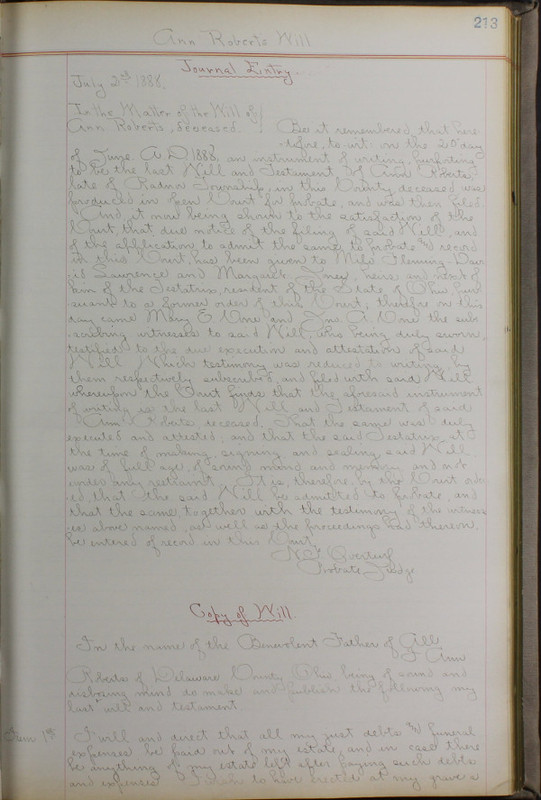 213
Ann Roberts Will
Journal Entry.
July 2nd 1888.
In the Matter of the Will of
Ann Roberts, deceased. Be it remembered, that here
tofore, to wit: on the 20" day
of June A.D 1888, an instrument of writing, purporting
to be the last Will and Testament, of Ann Roberts,
late of Radnor Township, in this County, deceased was
produced in Open Court for probate, and was then filed.
And, it now being shown to the satisfaction of the
Court, that due notice of the filing of said Will, and
of the application to admit the same to probate and record
in this Court has been given to Fleming
Lawrence and Margaret heirs and next of
kin of the Testatrix, resident of the State of Ohio pur
suant to a former order of this Court; therefore on this
day came Mary E. Cone and Jno. A. Cone the sub
scribing witnesses to said Will, who being duly sworn
testified to the due execution and attestation of said
Will Which testimony was reduced to writing, by
them respectively subscribed, and filed with said Will
whereupon the Court finds that the aforesaid instrument
of writing is the last Will and Testament of said
Ann Roberts deceased. That the same was duly
executed and attested, and that the said Testatrix at
the time of making, signing and sealing said Will
was of full age, of sound mind and memory, and not
under any restraint. It is, therefore, by the Court order
ed, that the said Will be admitted to Probate, and
that the same, together with the testimony of the witness
es above named, as well as the proceedings had thereon,
be entered of record in this Court
Overturf
Probate Judge
Copy of Will.
In the name of the Benevolent Father of All
I Ann
Roberts of Delaware County Ohio being of sound and
disposing mind do make and publish the following my
last will and testament.
Item 1st I will and direct that all my just debts and funeral
expenses be paid out of my estate, and in case there
be anything of my estate left after paying such debts
and expenses I wish to have erected at my grave a